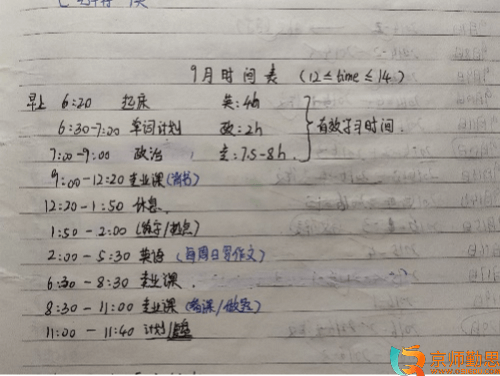 9月时间表 (12≤time≤14)
早上 6:20 起床 英:4h
6:30-7:20 单词计划 政:2h 有效学习时间.
7:00-9:00 政治 专:7.5-8h
9:00-12:20 专业课(背书)
12:20-1:50 休息
1:50-2:00
2:00-5:30 英语 (每周日写作文)
6:30-8:30 专业课
8:30-11:00 专业课 (看课/做题)
11:00-11:40 计划/
京师勤思